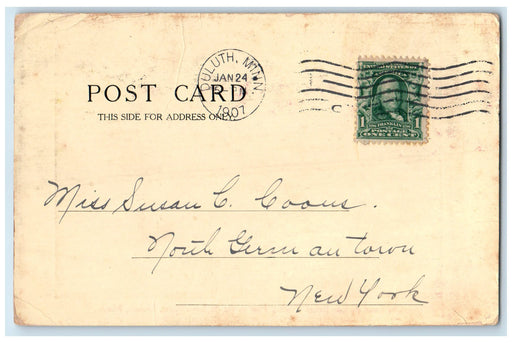 POST CARD
THIS SIDE FOR ADDRESS ONLY
DULUTH, MINN.
JAN 24
1907
FRANKLIN
1 1
POSTAGE
ONE CENT
Miss Susan C. Coons.
North Germantown
New York